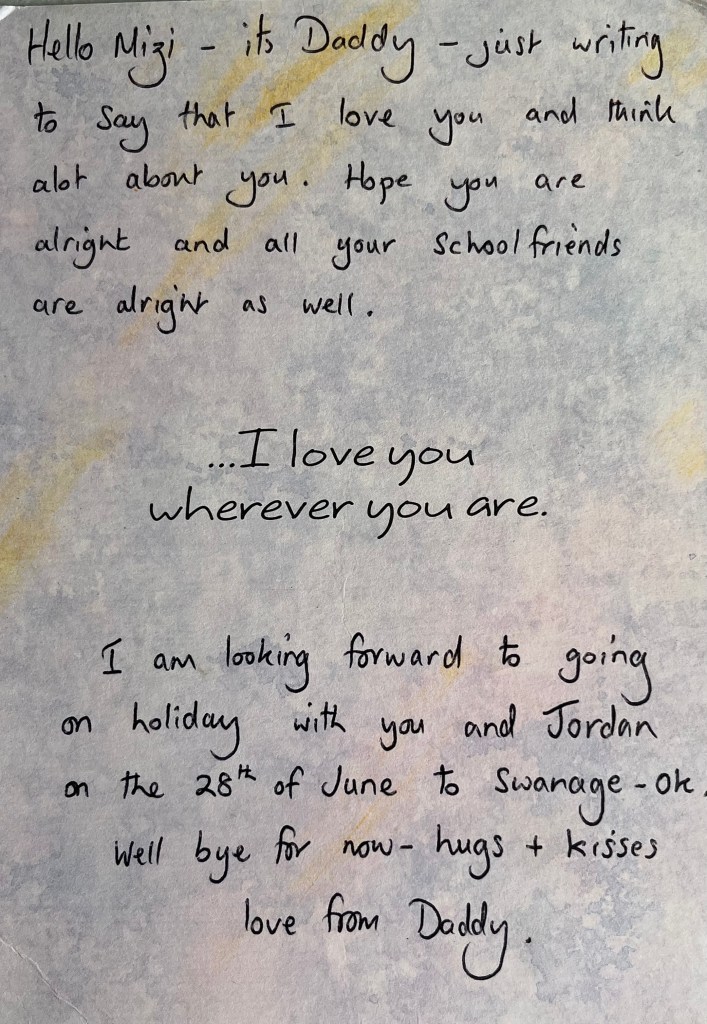 Hello Mizi - its Daddy - just writing
to say that I love you and think
alot about you. Hope you are
alright and all your schoolfriends
are alright as well.
...I love you
wherever you are.
I am looking forward to going
on holiday with you and Jordan
on the 28th of June to Swanage - ok.
Well bye for now - hugs + kisses
love from Daddy.